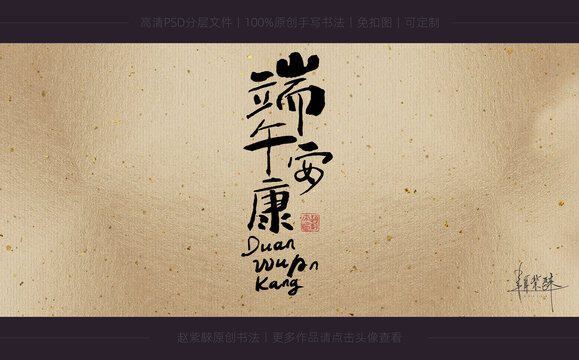 高清PSD分层文件丨100%原创手写书法丨免扣图丨可定制
端午安康
Duan
Wu An
Kang
赵紫睩原创书法丨更多作品请点击头像查看